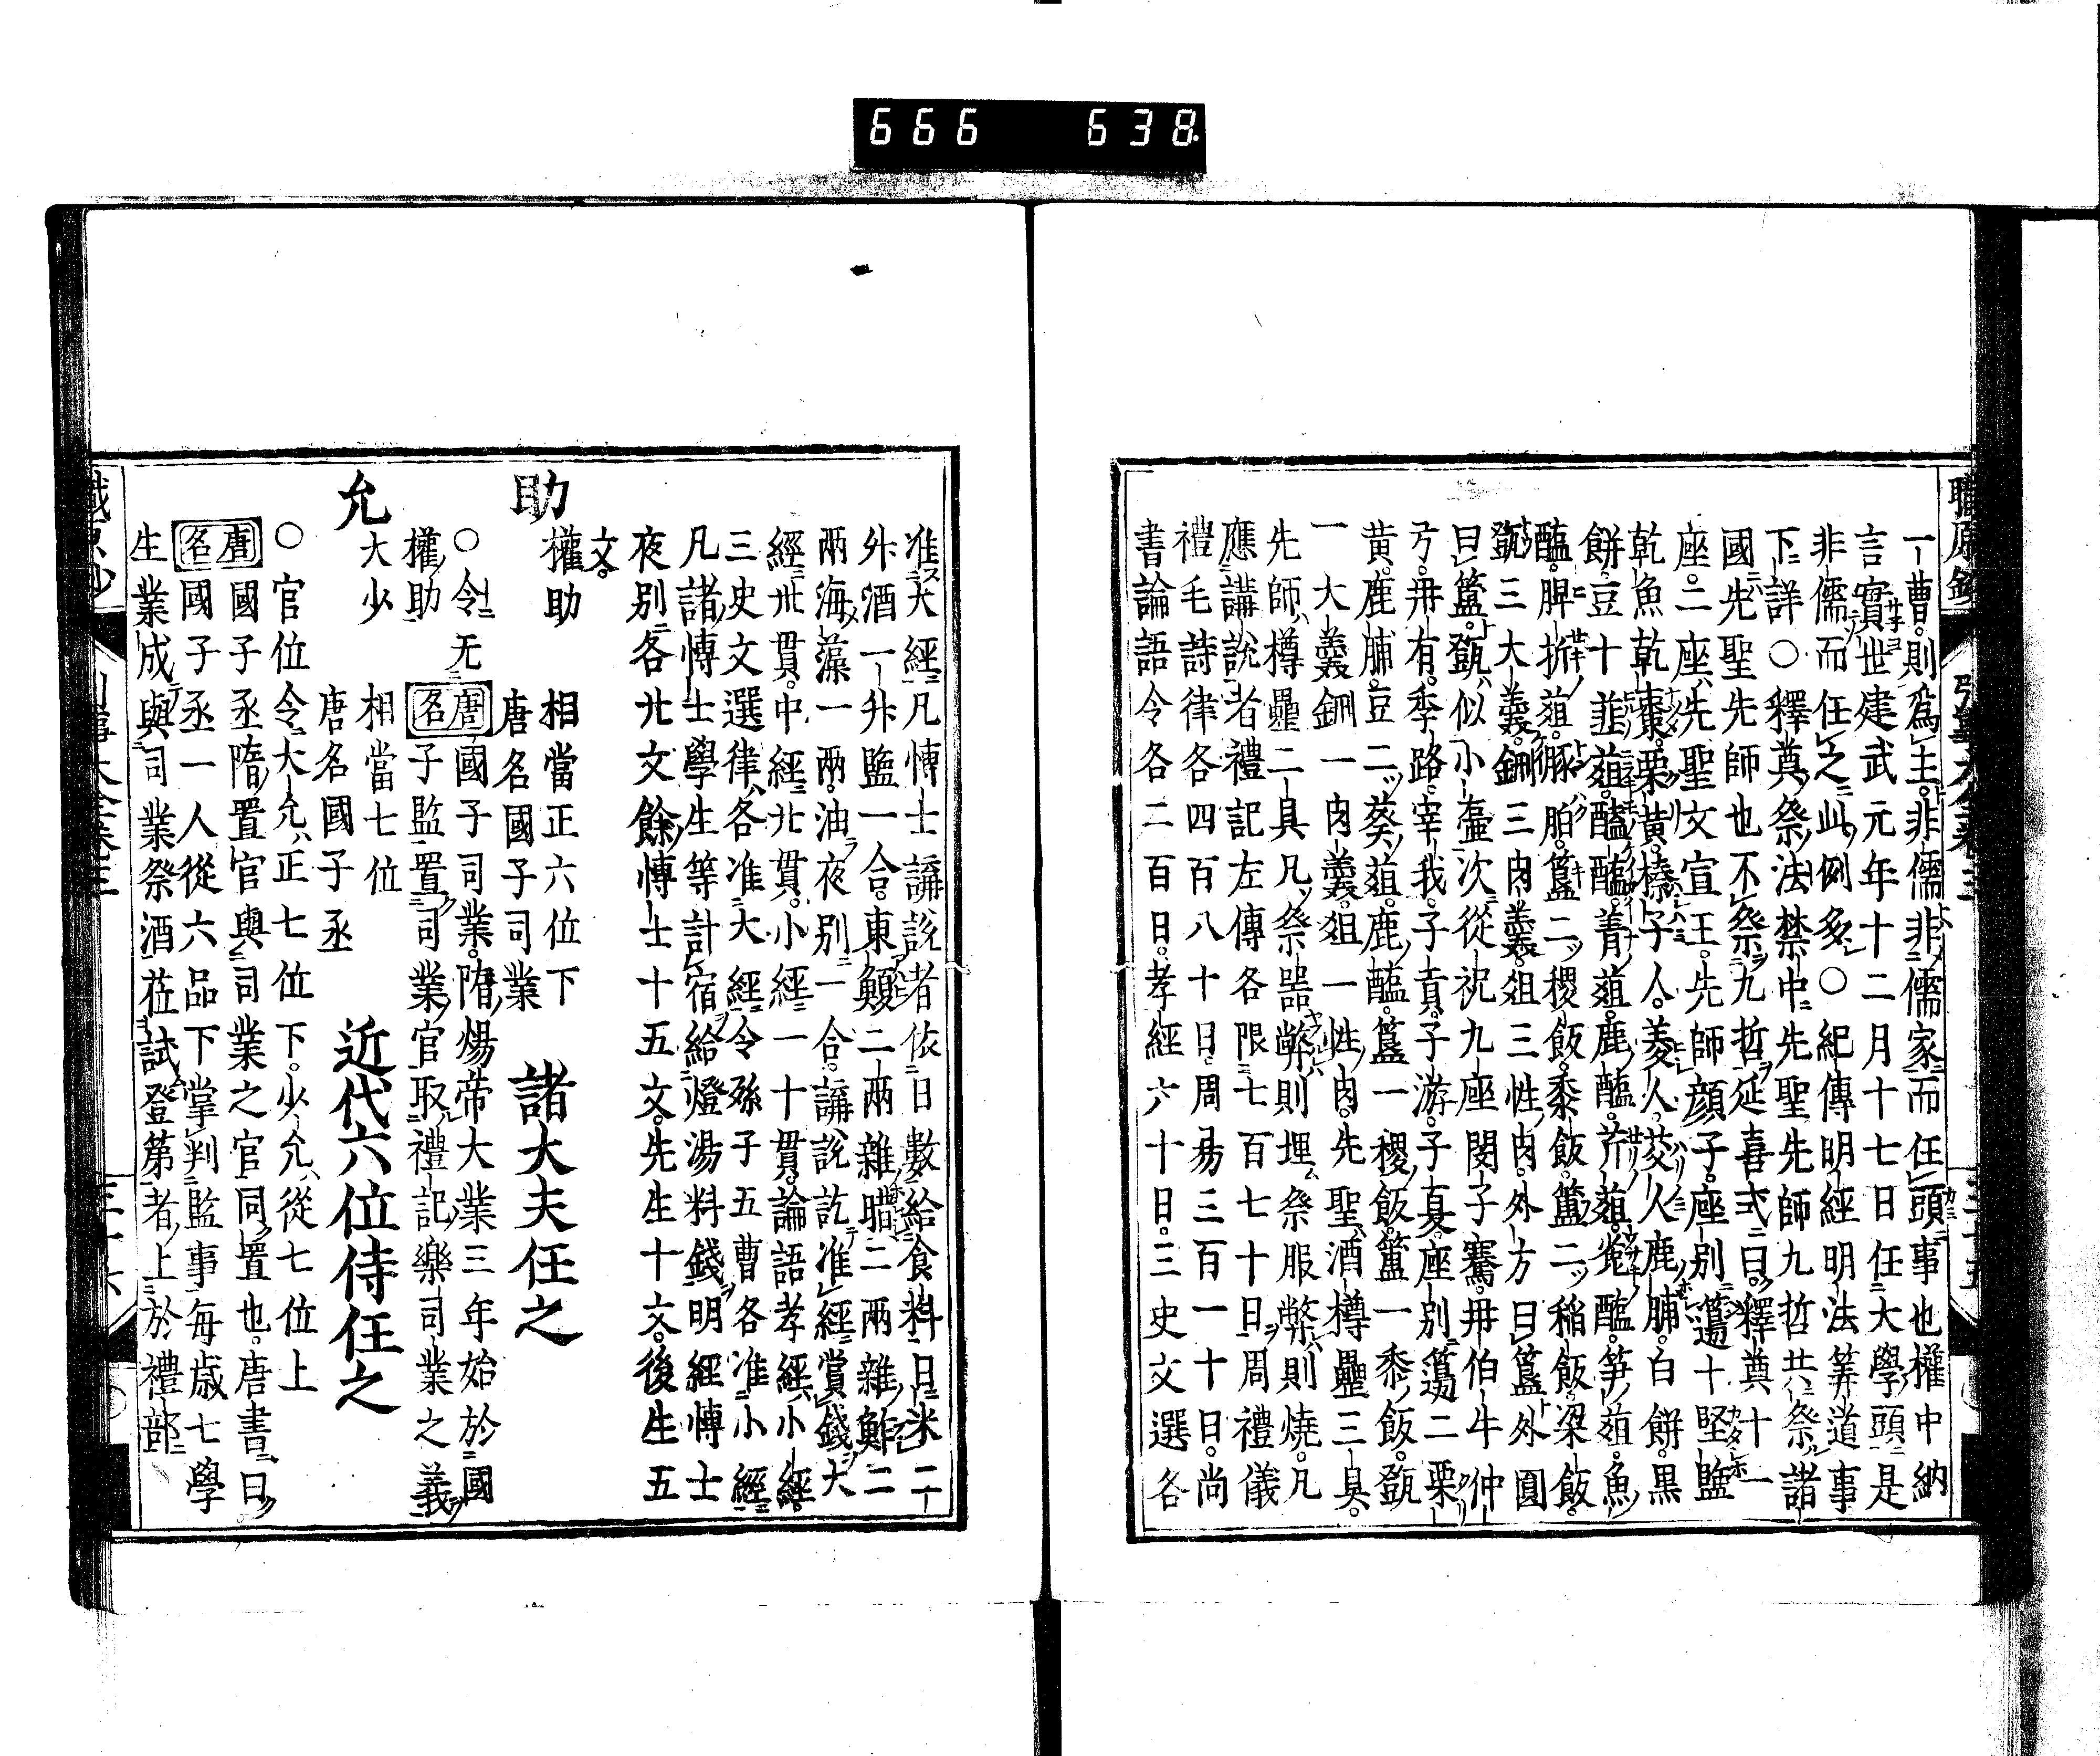 666 638
一曹則爲主非儒非儒家而任頭事也權中納
言實世建武元年十二月十七日任大學頭是
非儒而任之此例多○紀傳明經明法筭道事
下詳○釋奠祭法禁中先聖先師九哲共祭諸
國先聖先師也不祭九哲延喜式曰釋奠十一
座二座先聖文宣王先師顔子座別籩十堅鹽
乾魚乾棗栗黄榛子人菱人芡人鹿脯白餅黒
餅豆十韮葅醓醢菁葅鹿醢芹葅兎醢笋葅魚
醢脾折葅豚胉簋二稷飯黍飯簠二稲飯梁飯
㽅三大羹鉶三肉羹俎三性肉外方曰簠外圓
曰簋㽅似小壷次從祝九座閔子騫冉伯牛仲
弓冉有季路宰我子貢子游子夏座別籩二栗
黄鹿脯豆二葵葅鹿醢簋一稷飯簠一黍飯㽅
一大羹鉶一肉羹俎一性肉先聖酒樽罍三具
先師樽罍二具凡祭器弊則埋祭服弊則燒凡
應講説者禮記左傳各限七百七十日周禮儀
禮毛詩律各四百八十日周昜三百一十日尚
書論語令各二百日孝經六十日三史文選各
准大經凡博士講説者依日數給食料日米二
升酒一升鹽一合東鰒二兩雜腊二兩雜鮓二
兩海藻一兩油夜別一合講説訖准經賞錢大
經卅貫中經廿貫小經一十貫論語孝經小經
三史文選律各准大經令孫子五曹各准小經
凡諸博士學生等計宿給燈湯料錢明經博士
夜別各廿文餘博士十五文先生十文後生五
文
助 權助 相當正六位下 唐名國子司業 諸大夫任之
○令无權助 唐名 國子司業隋煬帝大業三年始於國
子監置司業官取禮記樂司業之義
允 大少 相當七位 唐名國子丞 近代六位侍任之
○官位令大允正七位下少允從七位上
唐名 國子丞隋置官與司業之官同置也唐書曰
國子丞一人從六品下掌判監事毎歳七學
生業成與司業祭酒莅試登第者上於禮部